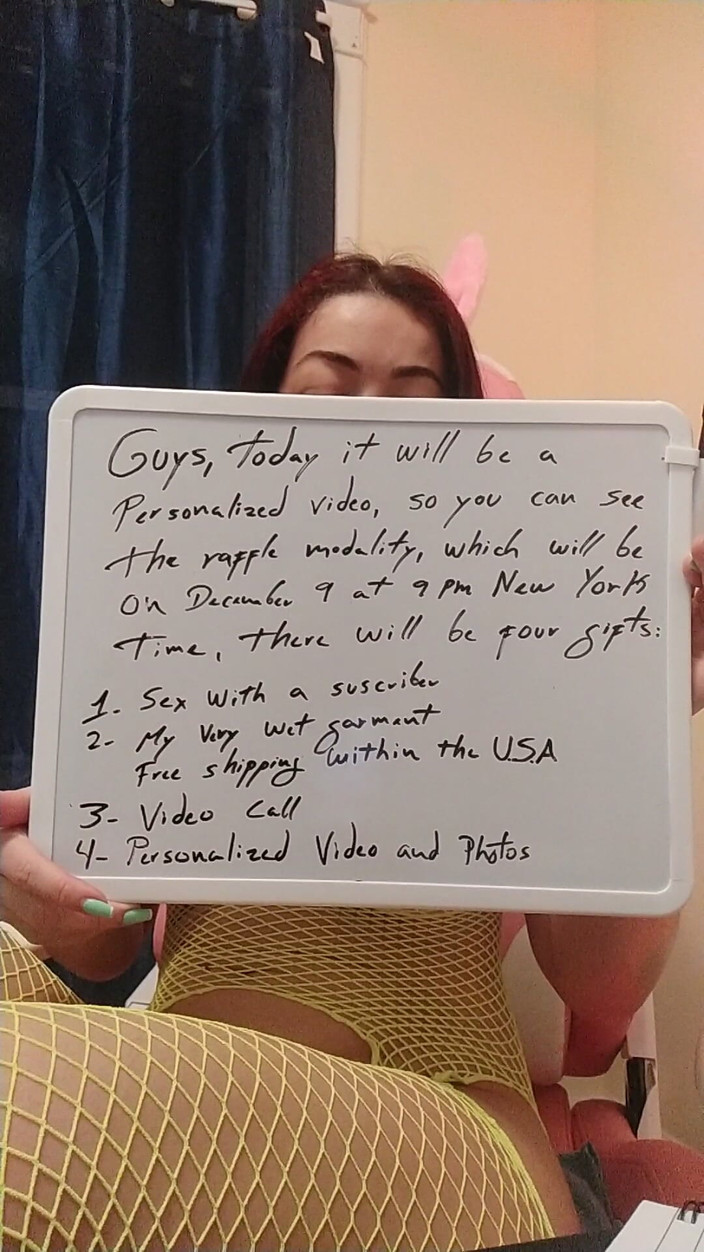 Guys, today it will be a
Personalized video, so you can see
the raffle modality, which will be
on December 9 at 9 pm New York
Time, there will be four gifts:
1- Sex with a suscriber
2- My Very wet garment
Free shipping within the U.S.A
3- Video Call
4- Personalized Video and Photos